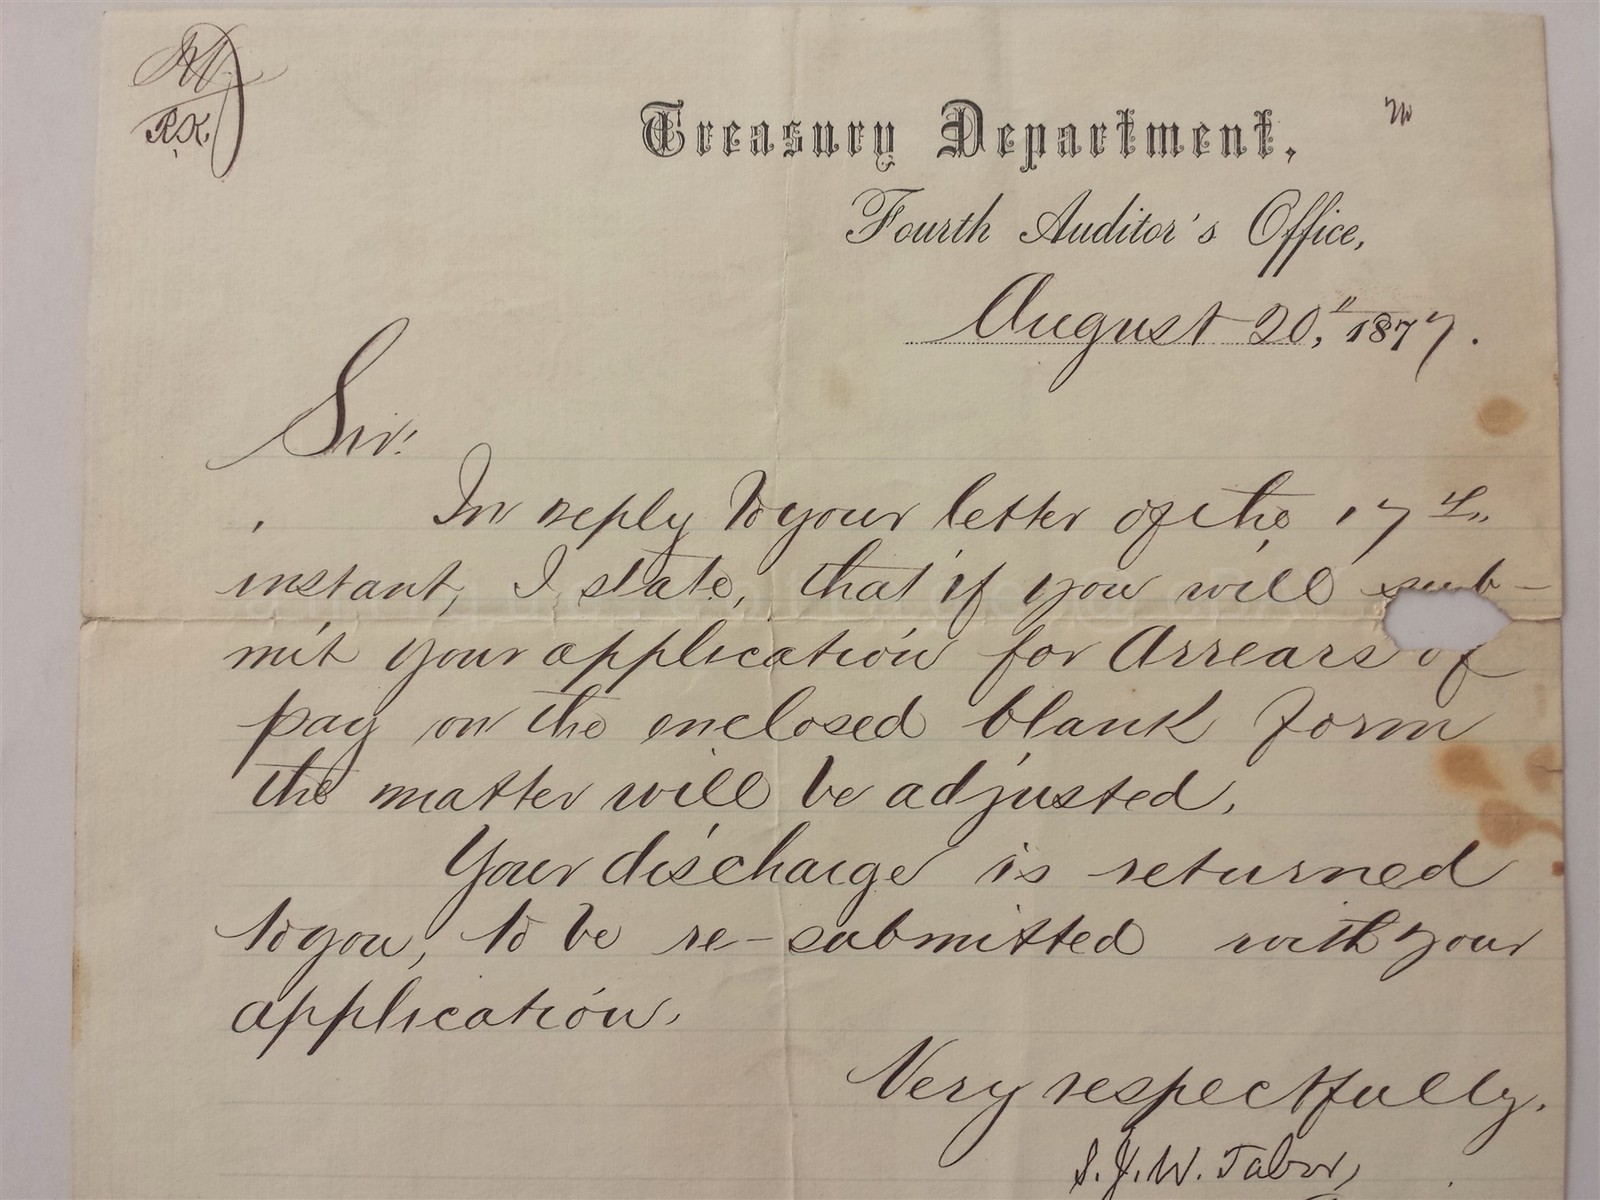 R.K.
Treasury Department,
Fourth Auditor's Office,
August 20", 1877.
Sir:
In reply to your letter of the 17th
instant, I state, that if you will sub-
mit your application for Arrears of
pay on the enclosed blank form
the matter will be adjusted.
Your discharge is returned
to you, to be re-submitted with your
application.
Very respectfully.
S.J.W. Tabor,